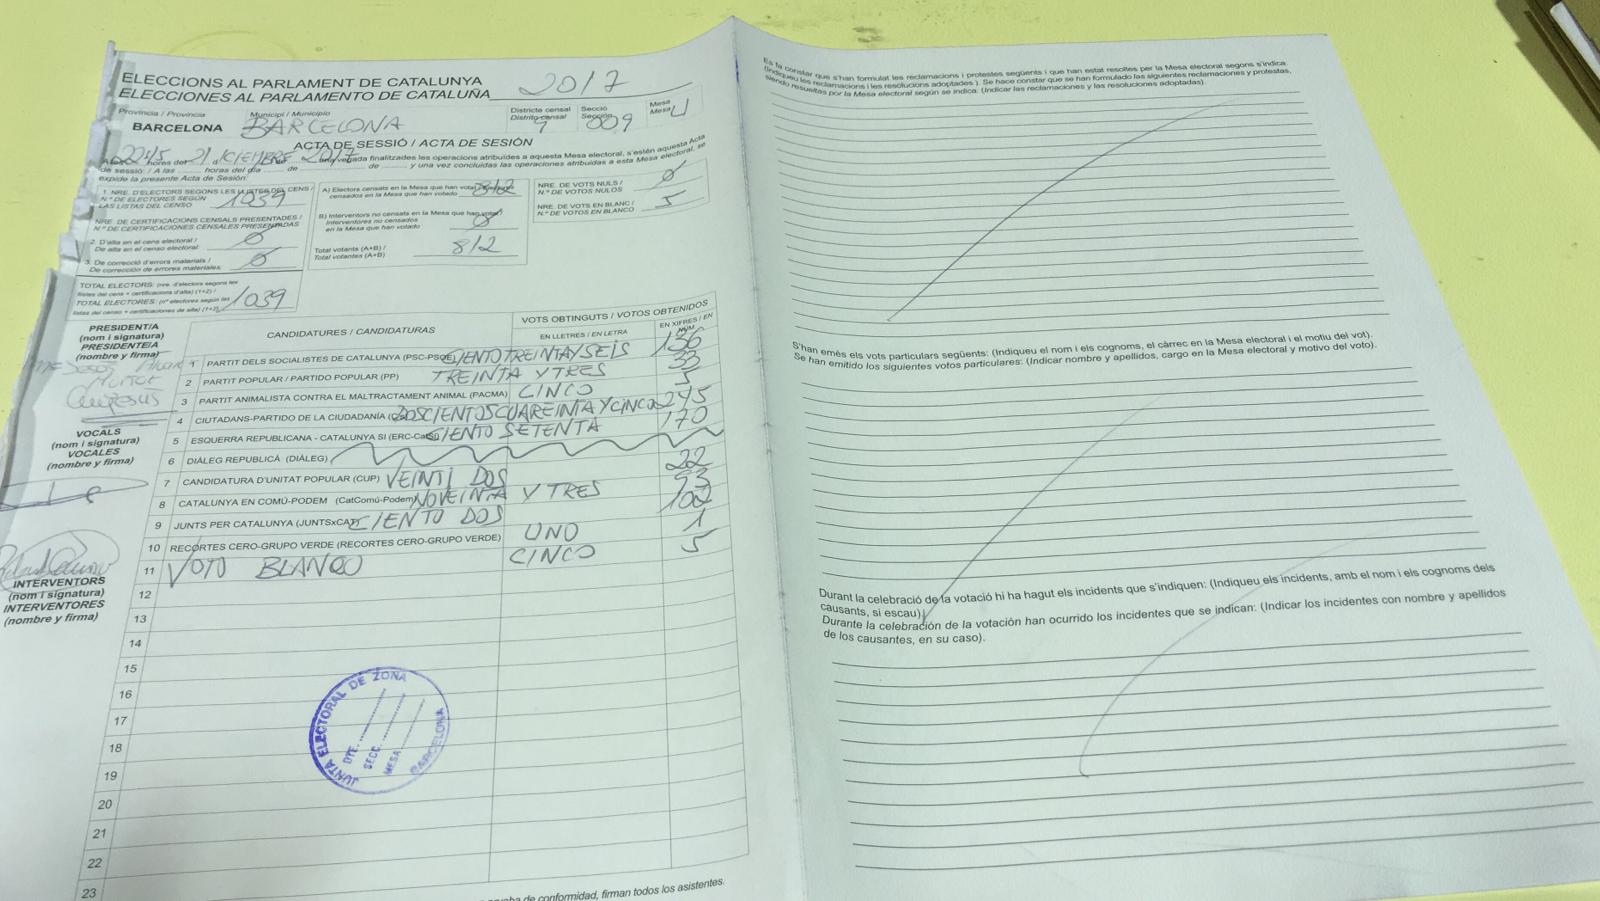 ELECCIONS AL PARLAMENT DE CATALUNYA
ELECCIONES AL PARLAMENTO DE CATALUÑA
2017
Província / Provincia
BARCELONA
Municipi / Municipio
BARCELONA
Districte censal
Distrito censal
9
Secció
Sección
009
Mesa
Mesa
U
ACTA DE SESSIÓ / ACTA DE SESIÓN
hores del 21 d DICIEMBRE 2017 una vegada finalitzades les operacions atribuïdes a aquesta Mesa electoral, s'estén aquesta Acta
de sessió: / A las ........ horas del día ..... de ........ de ....... y una vez concluidas las operaciones atribuidas a esta Mesa electoral, se
expide la presente Acta de Sesión:
1. NRE. D'ELECTORS SEGONS LES LLISTES DEL CENS /
N.º DE ELECTORES SEGÚN
LAS LISTAS DEL CENSO
1039
NRE. DE CERTIFICACIONS CENSALS PRESENTADES /
N.º DE CERTIFICACIONES CENSALES PRESENTADAS
2. D'alta en el cens electoral /
De alta en el censo electoral:
0
3. De correcció d'errors materials /
De corrección de errores materiales:
0
TOTAL ELECTORS: (nre. d'electors segons les
llistes del cens + certificacions d'alta) (1+2) /
TOTAL ELECTORES: (nº electores según las
listas del censo + certificaciones de alta) (1+2)
1039
A) Electors censats en la Mesa que han votat /
censados en la Mesa que han votado
812
B) Interventors no censats en la Mesa que han votat /
Interventores no censados
en la Mesa que han votado
0
Total votants (A+B) /
Total votantes (A+B)
812
NRE. DE VOTS NULS /
N.º DE VOTOS NULOS
0
NRE. DE VOTS EN BLANC /
N.º DE VOTOS EN BLANCO
5
PRESIDENT/A
(nom i signatura)
PRESIDENTE/A
(nombre y firma)
VOCALS
(nom i signatura)
VOCALES
(nombre y firma)
INTERVENTORS
(nom i signatura)
INTERVENTORES
(nombre y firma)
CANDIDATURES / CANDIDATURAS
VOTS OBTINGUTS / VOTOS OBTENIDOS
EN LLETRES / EN LETRA
EN XIFRES / EN NÚM
1 PARTIT DELS SOCIALISTES DE CATALUNYA (PSC-PSOE) CIENTO TREINTA Y SEIS 136
2 PARTIT POPULAR / PARTIDO POPULAR (PP) TREINTA Y TRES 33
3 PARTIT ANIMALISTA CONTRA EL MALTRACTAMENT ANIMAL (PACMA) CINCO 5
4 CIUTADANS-PARTIDO DE LA CIUDADANÍA DOSCIENTOS CUAREINTA Y CINCO 245
5 ESQUERRA REPUBLICANA - CATALUNYA SÍ (ERC-CatSí) CIENTO SETENTA 170
6 DIÀLEG REPUBLICÀ (DIÀLEG)
7 CANDIDATURA D'UNITAT POPULAR (CUP) VEINTI DOS 22
8 CATALUNYA EN COMÚ-PODEM (CatComú-Podem) NOVEINTA Y TRES 93
9 JUNTS PER CATALUNYA (JUNTSxCAT) CIENTO DOS 102
10 RECORTES CERO-GRUPO VERDE (RECORTES CERO-GRUPO VERDE) UNO 1
11 VOTO BLANCO CINCO 5
12
13
14
15
16
17
18
19
20
21
22
23
JUNTA ELECTORAL DE ZONA
DTE.
SECC.
MESA
BARCELONA
de conformidad, firman todos los asistentes.
Es fa constar que s'han formulat les reclamacions i protestes següents i que han estat resoltes per la Mesa electoral segons s'indica:
(Indiqueu les reclamacions i les resolucions adoptades). Se hace constar que se han formulado las siguientes reclamaciones y protestas,
siendo resueltas por la Mesa electoral según se indica: (Indicar las reclamaciones y las resoluciones adoptadas).
S'han emès els vots particulars següents: (Indiqueu el nom i els cognoms, el càrrec en la Mesa electoral i el motiu del vot).
Se han emitido los siguientes votos particulares: (Indicar nombre y apellidos, cargo en la Mesa electoral y motivo del voto).
Durant la celebració de la votació hi ha hagut els incidents que s'indiquen: (Indiqueu els incidents, amb el nom i els cognoms dels
causants, si escau)
Durante la celebración de la votación han ocurrido los incidentes que se indican: (Indicar los incidentes con nombre y apellidos
de los causantes, en su caso).